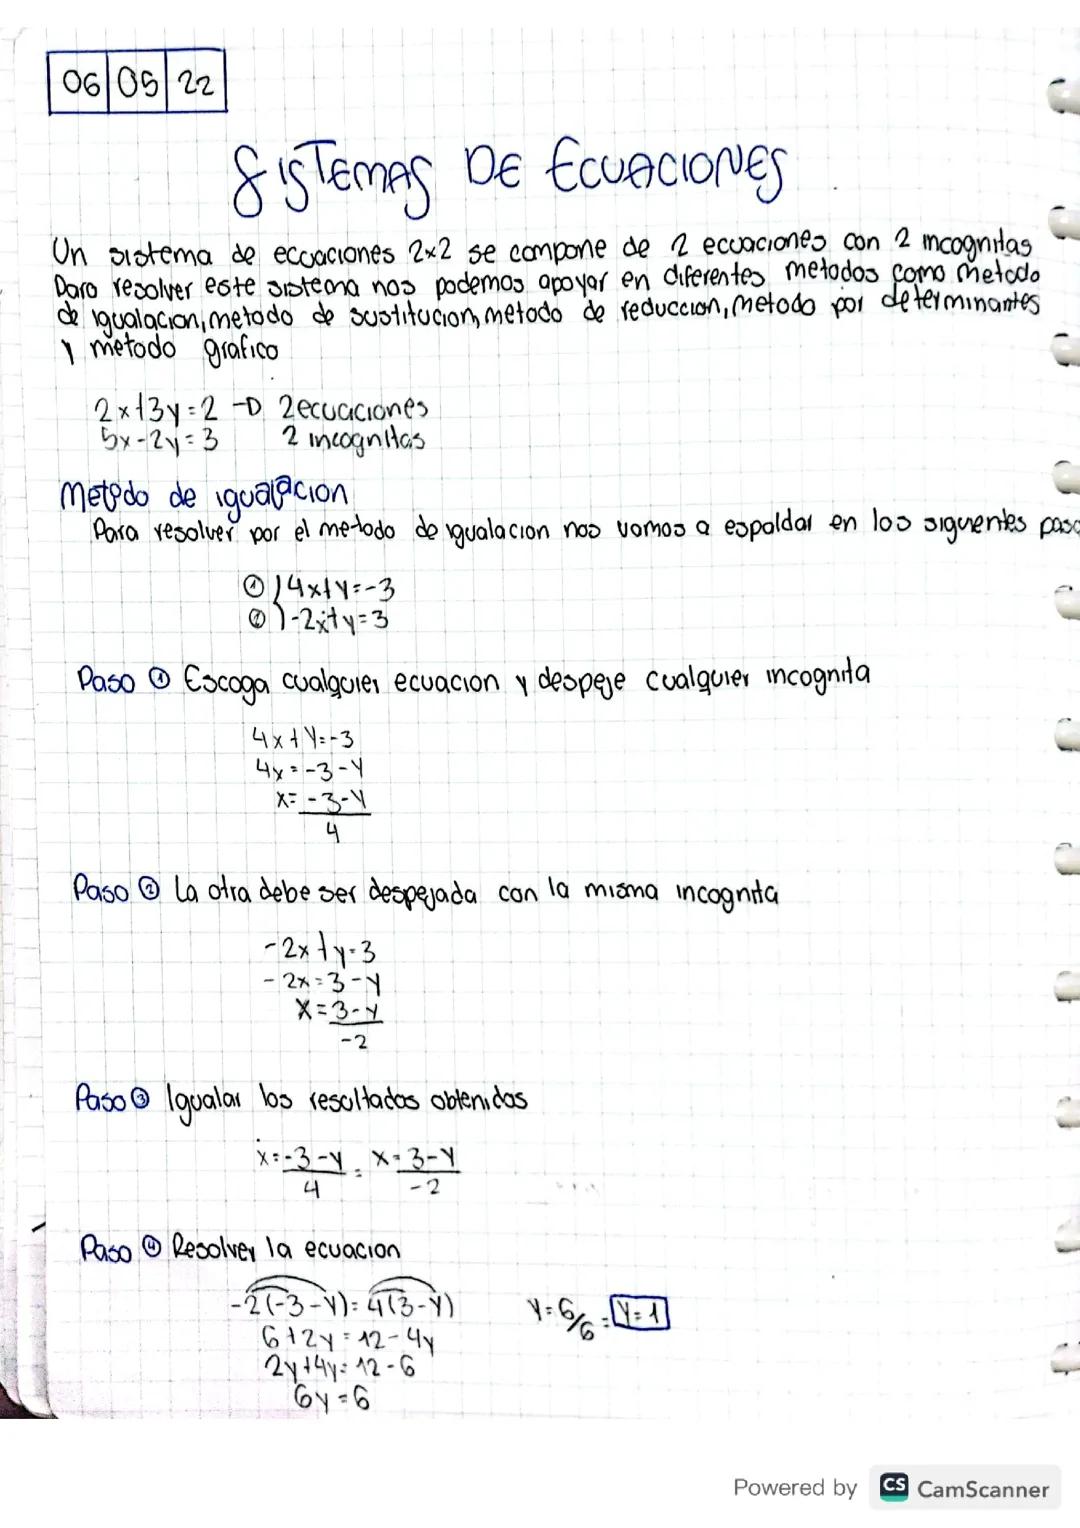 06 05 22
SISTEMAS DE ECUACIONES
Un sistema de ecuaciones 2x2 se compone de 2 ecuaciones con 2 incognitas
Para resolver este sistema nos podemos apoyar en diferentes metodos como metodo
de igualacion, metodo de sustitucion, metodo de reduccion, metodo por determinantes
y metodo grafico
2x+3y=2 → 2 ecuaciones
5x-2y=3 2 incognitas
Metodo de igualacion
Para resolver por el metodo de igualacion nos vamos a espaldar en los siguentes paso
① 4x+y=-3
② -2x+y=3
Paso ① Escoga cualquier ecuacion y despeje cualquier incognita
4x+y=-3
4x=-3-y
x=-3-y
4
Paso ② La otra debe ser despejada con la misma incognita
-2x+y=3
-2x=3-y
x=3-y
-2
Paso ③ Igualar los resultados obtenidos
x=-3-y = x=3-y
4 -2
Paso ④ Resolver la ecuacion
-2(-3-y)=4(3-y) y=6/6=y=1
6+2y=12-4y
2y+4y=12-6
6y=6
Powered by CS CamScanner